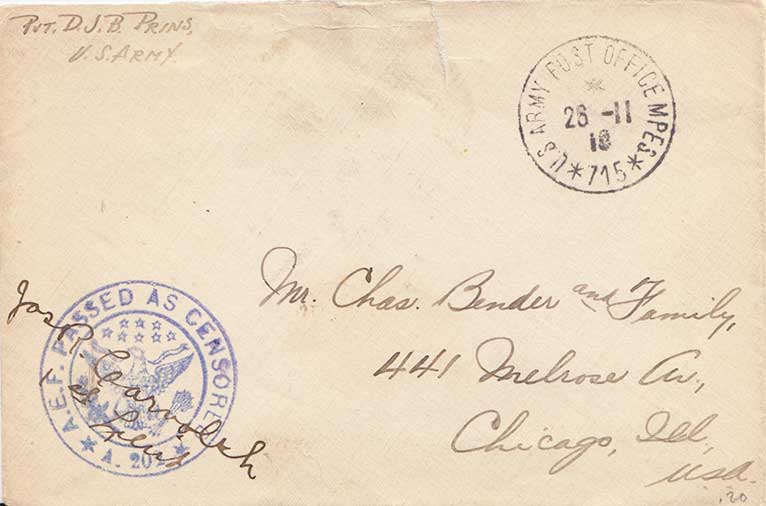 Pvt. D.J.B. Prins,
U.S. Army
U.S. ARMY POST OFFICE MPES
26 -11
18
* 715 *
Mr. Chas. Bender and Family,
441 Melrose Av.,
Chicago, Ill.,
USA.
.20
A.E.F. PASSED AS CENSORED
A. 202
Jas R.
1st Lieut